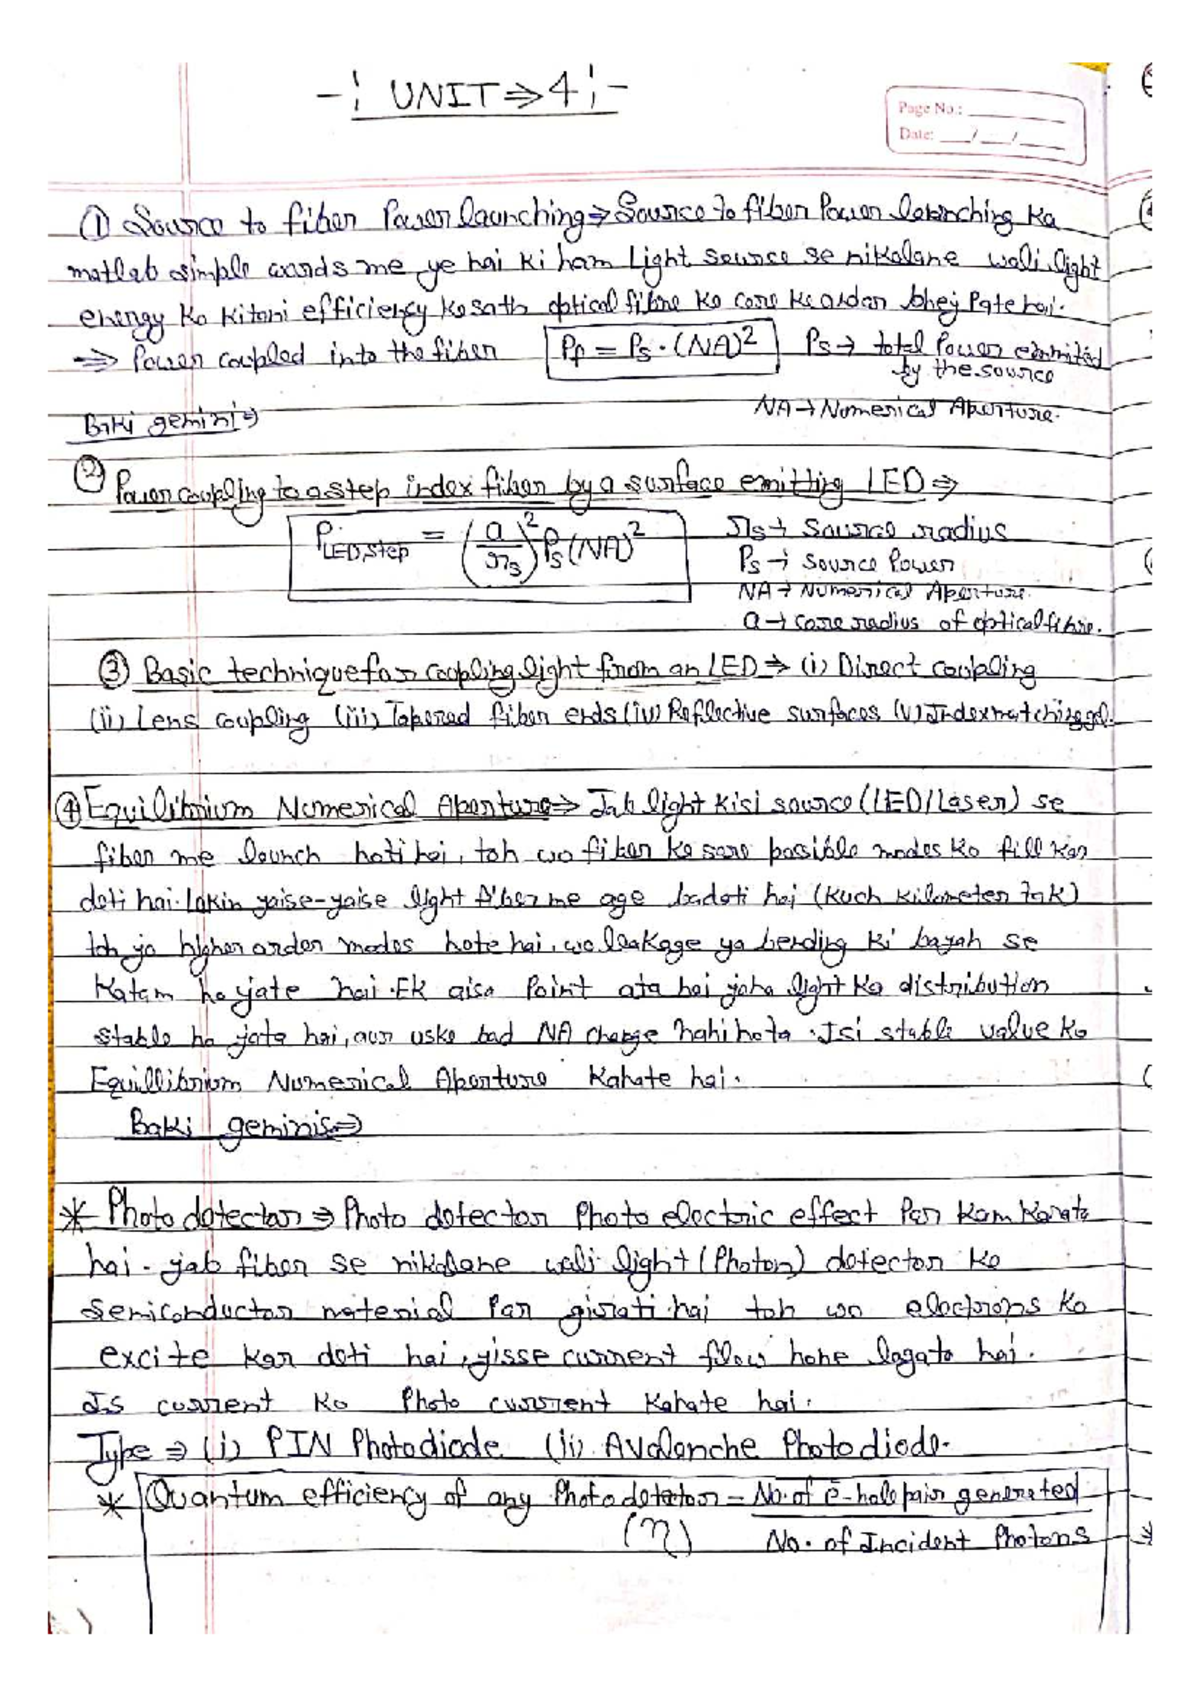 -: UNIT⇒4 :-
Page No.:
Date: __/__/__
① Source to fiber Power launching⇒Source to fiber Power launching ka
matlab simple words me ye hai ki ham Light source se nikalane wali light
energy ko kitani efficiency ke sath optical fibre ke core ke andar bhej pate hai.
⇒ Power coupled into the fiber Pf = Ps·(NA)² Ps→ total Power emmited
by the source
NA→Numerical Aperture.
Baki gemini⇒
② Power coupling to a step index fiber by a surface emitting LED⇒
P LED,step = (a/rs)² Ps (NA)² rs→ Source radius
Ps→ Source Power
NA→Numerical Aperture.
a→core radius of optical fibre.
③ Basic technique for coupling light from an LED⇒ (i) Direct coupling
(ii) Lens coupling (iii) Tapered fiber ends (iv) Reflective surfaces (v) Index matching gel.
④ Equilibrium Numerical Aperture⇒ Jab light kisi source (LED/Laser) se
fiber me launch hoti hai, toh wo fiber ke sare possible modes ko fill kar
deti hai. Lakin jaise-jaise light fiber me age badati hai (kuch kilometer tak)
toh jo higher order modes hote hai, wo leakage ya bending ki bajah se
katam ho jate hai. Ek aisa Point ata hai jaha light ka distribution
stable ho jata hai, aur uske bad NA change nahi hota. Isi stable value ko
Equillibrium Numerical Aperture Kahate hai.
Baki geminis⇒
* Photo detector⇒ Photo detector Photo electric effect Par Kam Karata
hai. jab fiber se nikalane wali light (Photon) detector ke
Semiconductor material Par girati hai toh wo electrons ko
excite kar deti hai, jisse current flow hone lagata hai.
Is current ko Photo current Kahate hai.
Type ⇒ (i) PIN Photodiode (ii) Avalanche Photodiode.
* Quantum efficiency of any Photodetector = No. of e̅-hole pair generated
(η) No. of Incident Photons